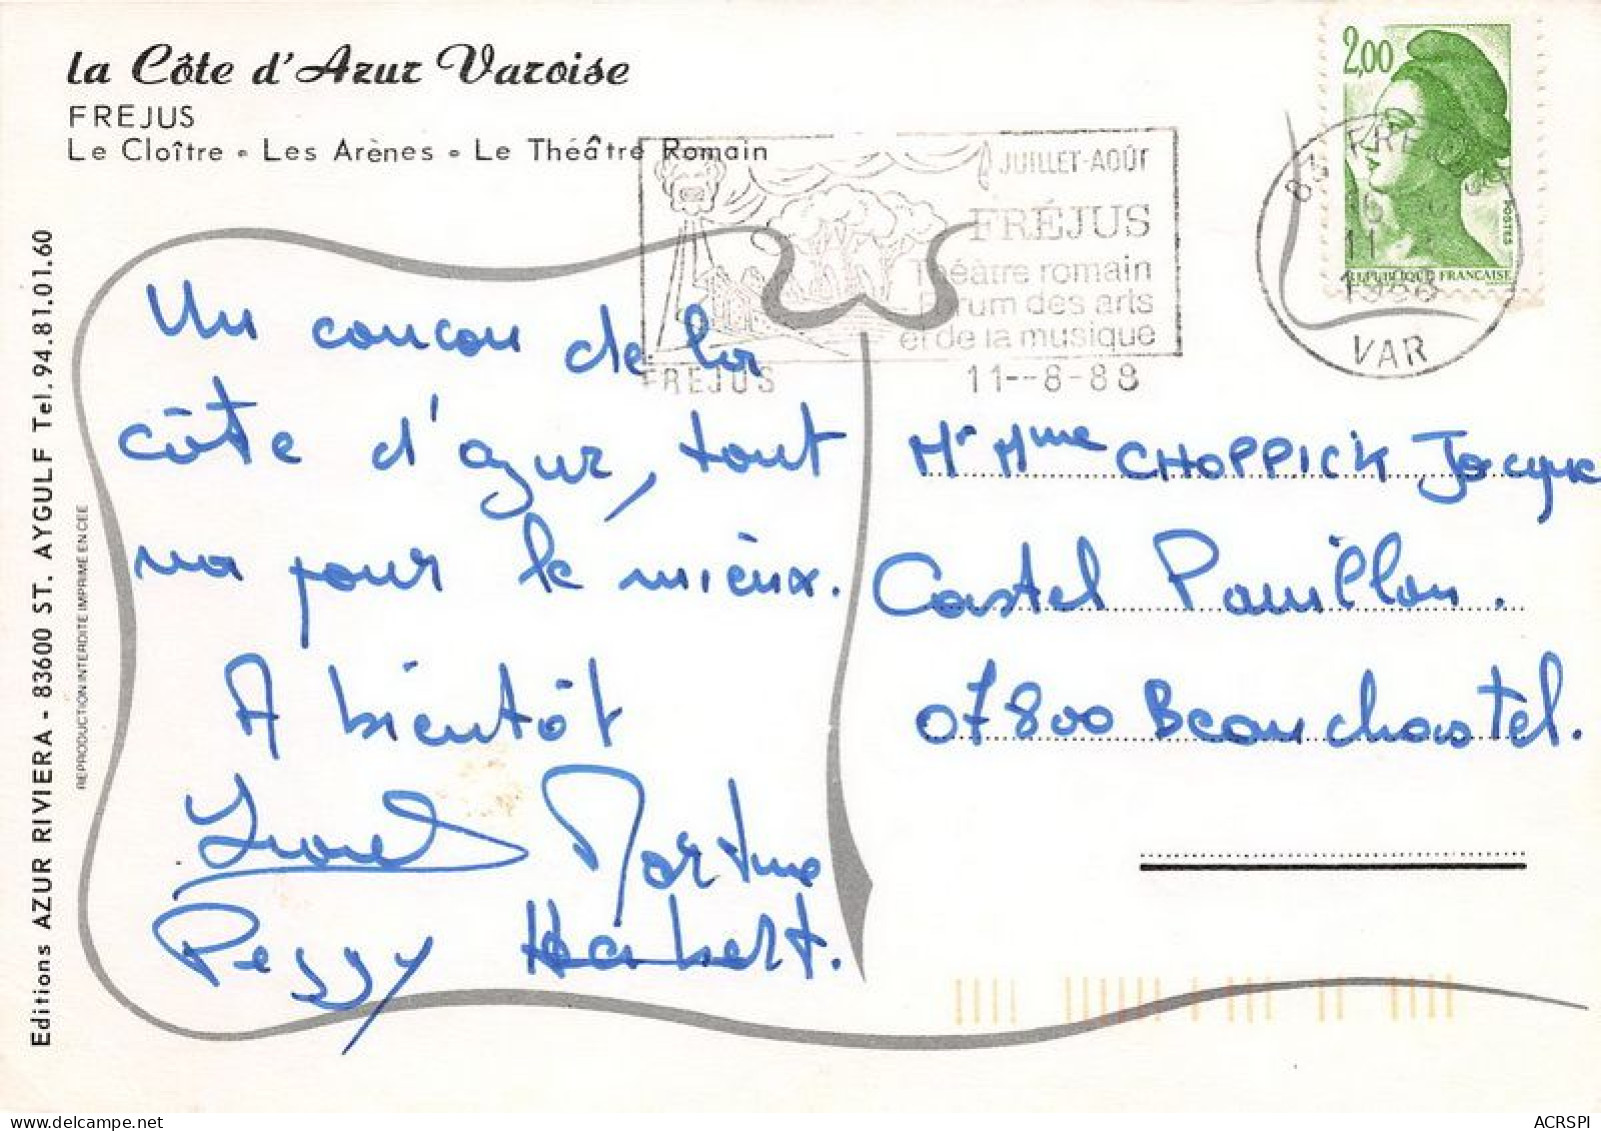 la Côte d'Azur Varoise
FREJUS
Le Cloître • Les Arènes • Le Théâtre Romain
JUILLET-AOÛT
FRÉJUS
Théâtre romain
Forum des arts
et de la musique
FREJUS 11--8-88
2,00
POSTES
REPUBLIQUE FRANCAISE
11
1988
VAR
Un coucou de la
côte d'azur, tout
va pour le mieux.
A bientôt
Lionel Martine
Peggy Herbert.
Mr Mme CHOPPICK Jacque
Castel Pavillon.
07800 Beauchastel.
Editions AZUR RIVIERA - 83600 ST. AYGULF Tel. 94.81.01.60
REPRODUCTION INTERDITE IMPRIME EN CEE
ACRSPI